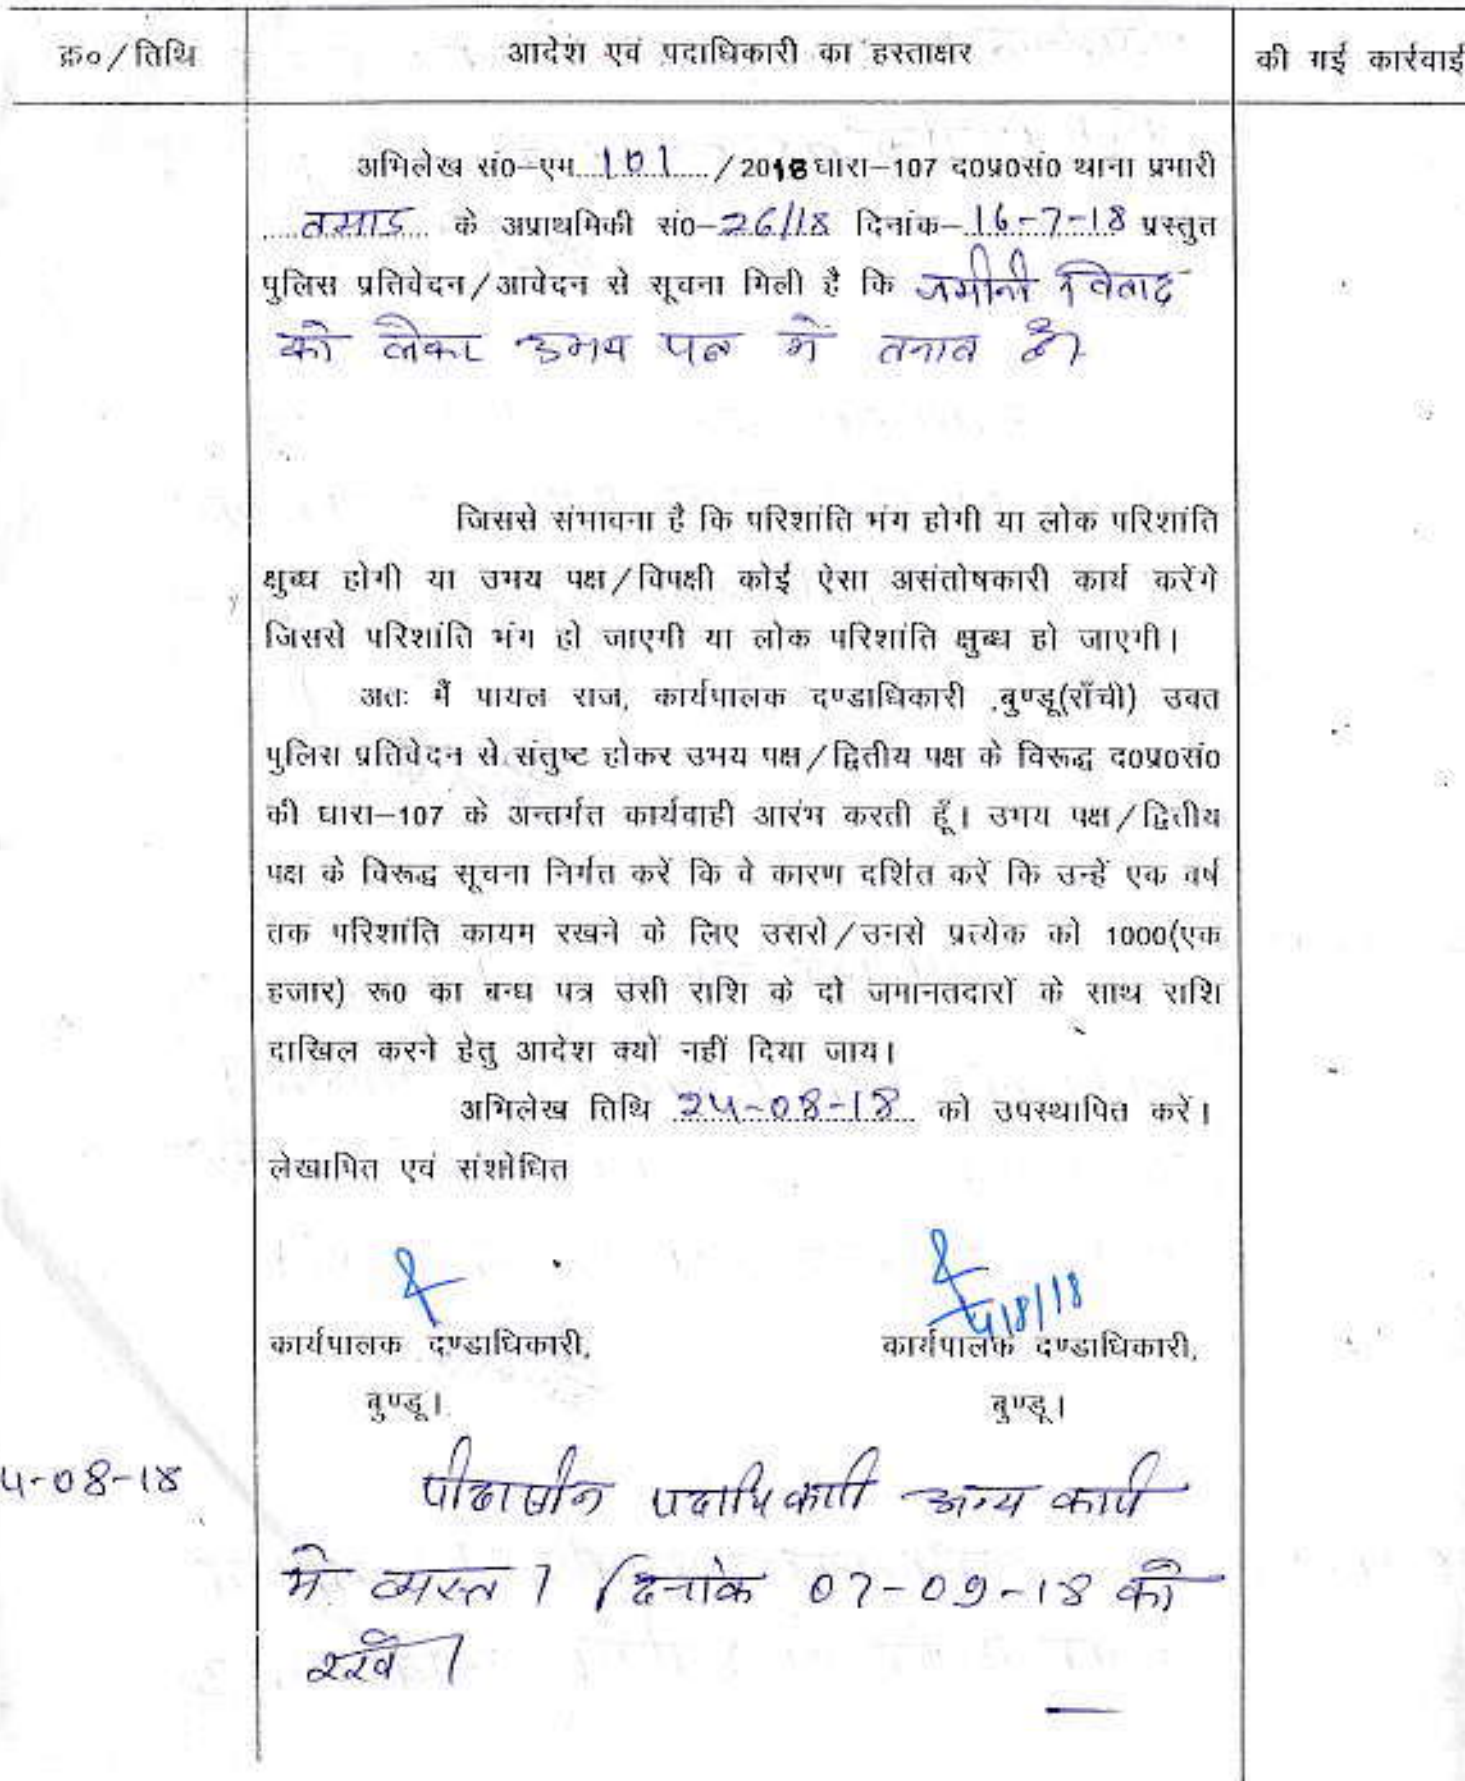 क्र०/तिथि
आदेश एवं पदाधिकारी का हस्ताक्षर
की गई कार्रवाई
अभिलेख सं०–एम 101 /2018 धारा–107 द०प्र०सं० थाना प्रभारी
तमाड के अप्राथमिकी सं०–26/18 दिनांक–16-7-18 प्रस्तुत
पुलिस प्रतिवेदन/आवेदन से सूचना मिली है कि जमीनी विवाद
को लेकर उभय पक्ष में तनाव है।
जिससे संभावना है कि परिशांति भंग होगी या लोक परिशांति
क्षुब्ध होगी या उभय पक्ष/विपक्षी कोई ऐसा असंतोषकारी कार्य करेंगे
जिससे परिशांति भंग हो जाएगी या लोक परिशांति क्षुब्ध हो जाएगी।
अतः मैं पायल राज, कार्यपालक दण्डाधिकारी ,बुण्डू(राँची) उक्त
पुलिस प्रतिवेदन से संतुष्ट होकर उभय पक्ष/द्वितीय पक्ष के विरूद्ध द०प्र०सं०
की धारा–107 के अन्तर्गत कार्यवाही आरंभ करती हूँ। उभय पक्ष/द्वितीय
पक्ष के विरूद्ध सूचना निर्गत करें कि वे कारण दर्शित करें कि उन्हें एक वर्ष
तक परिशांति कायम रखने के लिए उससे/उनसे प्रत्येक को 1000(एक
हजार) रू० का बन्ध पत्र उसी राशि के दो जमानतदारों के साथ राशि
दाखिल करने हेतु आदेश क्यों नहीं दिया जाय।
अभिलेख तिथि 24-08-18 को उपस्थापित करें।
लेखापित एवं संशोधित
4/8/18
कार्यपालक दण्डाधिकारी, कार्यपालक दण्डाधिकारी,
बुण्डू। बुण्डू।
4-08-18 पीठासीन पदाधिकारी अन्य कार्य
में व्यस्त। दिनांक 07-09-18 को
रखें।